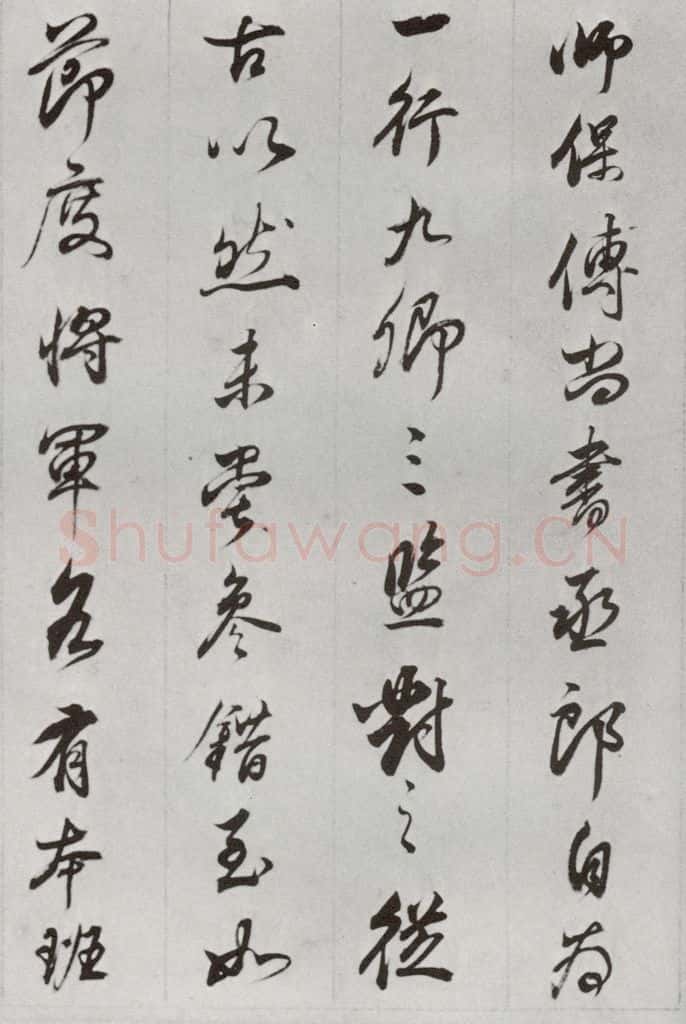 師保傅尚書丞郎自為
一行九卿三監對之從
古以然未嘗參錯至如
節度將軍各有本班
Shufawang.CN